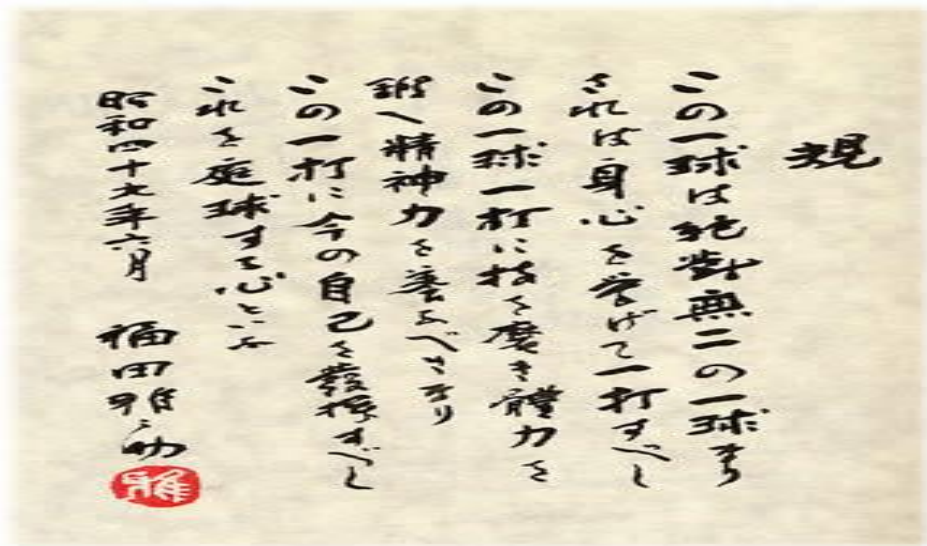 規
この一球は絶對無二の一球なり
されば身心を挙げて一打すべし
この一球一打に技を磨き體力を
鍛へ精神力を養ふべきなり
この一打に今の自己を發揮すべし
これを庭球する心といふ
昭和四十六年六月 福田雅之助
雅